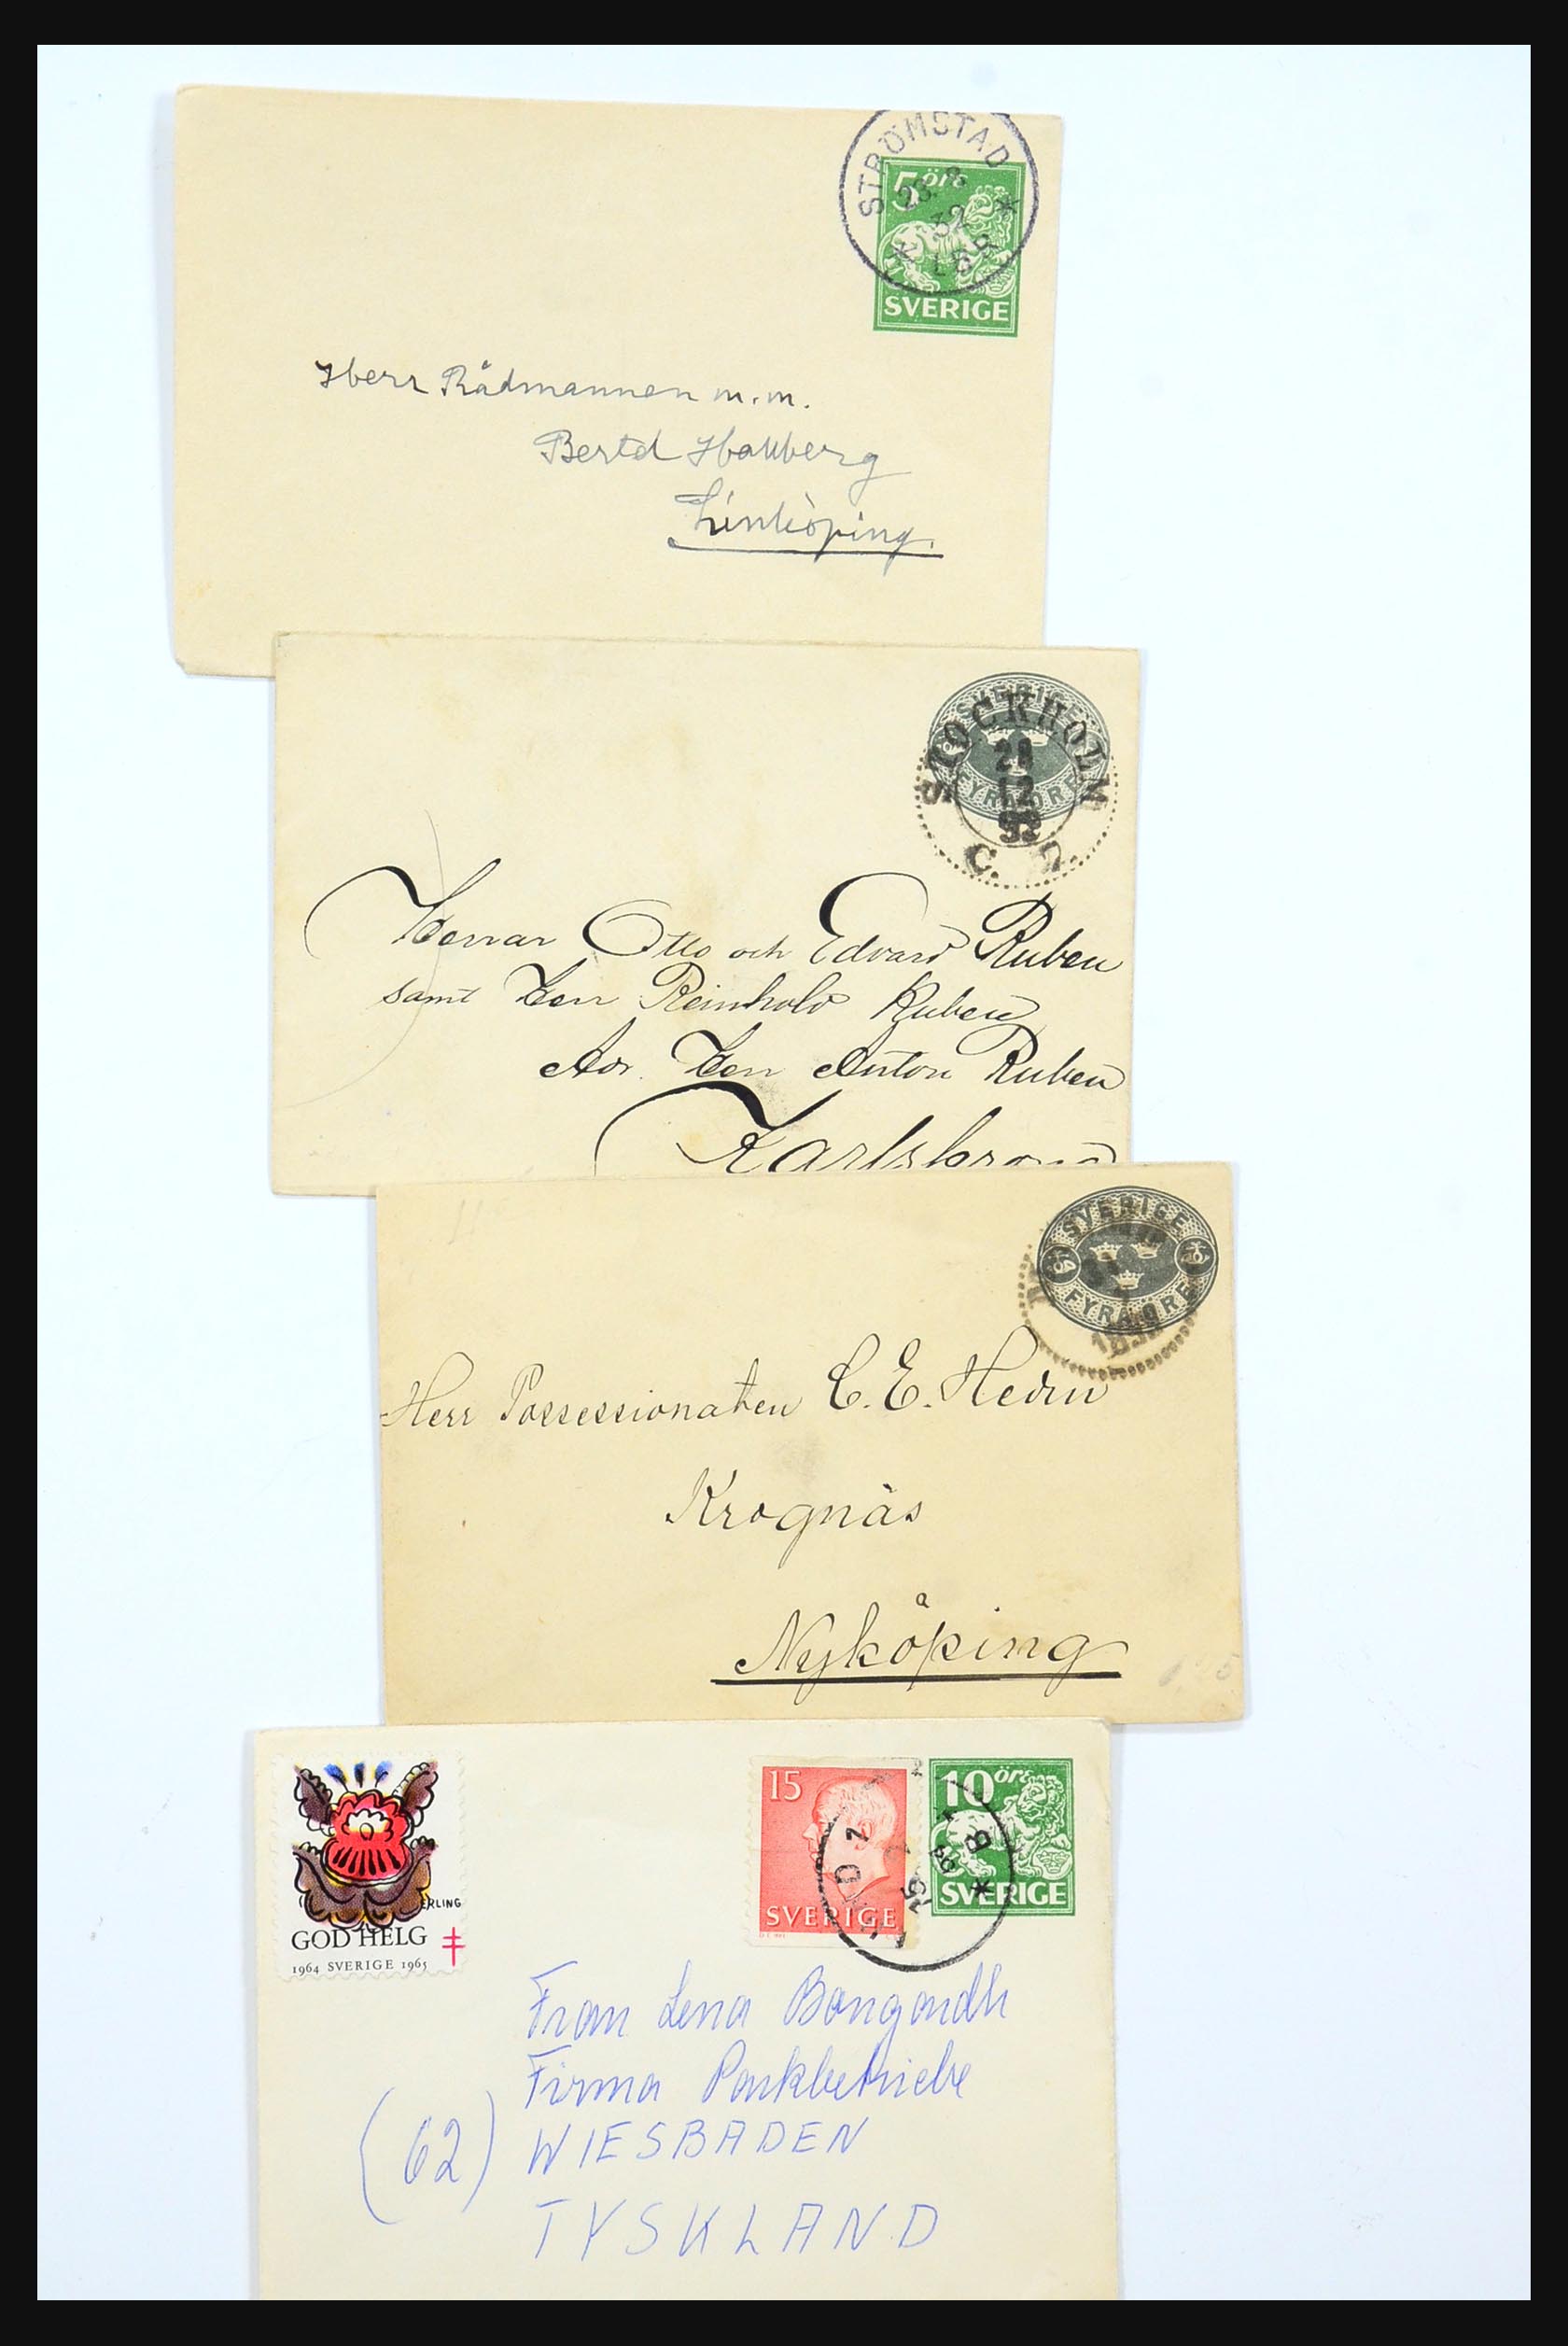 STRÖMSTAD
5 öre
23. 8
32
LBR
SVERIGE
Herr Rådmannen m.m.
Bertel Hallberg
Linköping.
SVERIGE
STOCKHOLM
12
92
FYRA ÖRE
C.
Herrar Otto och Edvard Ruben
samt Herr Reinhold Ruben
Adr. Herr Anton Ruben
Karlskrona
SVERIGE
4 4
FYRA ÖRE
Herr Possessionaten C. E. Hedin
Krognäs
å
Nyköping
15
SVERIGE
10 öre
SVERIGE
ERLING
GOD HELG
1964 SVERIGE 1965
Frau Lena
Firma Parkbetriebe
(62) WIESBADEN
TYSKLAND